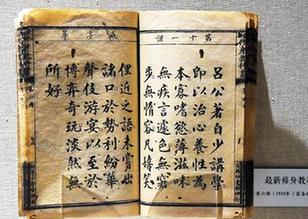 第十一課
呂公著自少講學
即以治心養性為
本寡嗜慾薄滋味
無疾言遽色無窘
步無惰容凡嬉笑
俚近之語未嘗出
諸口於勢利紛華
聲伎游宴以至於
博弈奇玩淡然無
所好
最新修身教